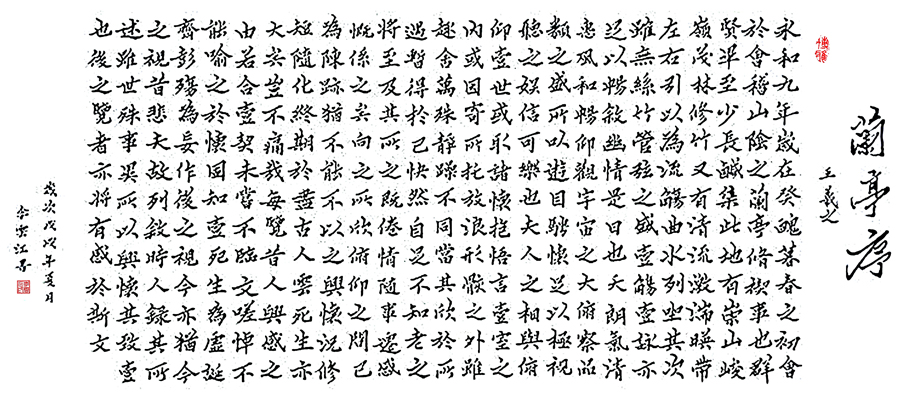 蘭亭序
王羲之
永和九年歲在癸醜暮春之初會
於會稽山陰之蘭亭修禊事也群
賢畢至少長鹹集此地有崇山峻
嶺茂林修竹又有清流激湍暎帶
左右引以為流觴曲水列坐其次
雖無絲竹管弦之盛壹觴壹詠亦
足以暢敘幽情是日也天朗氣清
惠風和暢仰觀宇宙之大俯察品
類之盛所以遊目騁懷足以極視
聽之娛信可樂也夫人之相與俯
仰壹世或取諸懷抱悟言壹室之
內或因寄所托放浪形骸之外雖
趣舍萬殊靜躁不同當其欣於所
遇暫得於己快然自足不知老之
將至及其所之既倦情隨事遷感
慨係之矣向之所欣俯仰之間已
為陳跡猶不能不以之興懷況修
短隨化終期於盡古人雲死生亦
大矣豈不痛哉每覽昔人興感之
由若合壹契未嘗不臨文嗟悼不
能喻之於懷固知壹死生為虛誕
齊彭殤為妄作後之視今亦猶今
之視昔悲夫故列敘時人錄其所
述雖世殊事異所以興懷其致壹
也後之覽者亦將有感於斯文
歲次戊戌年夏月
雲江書